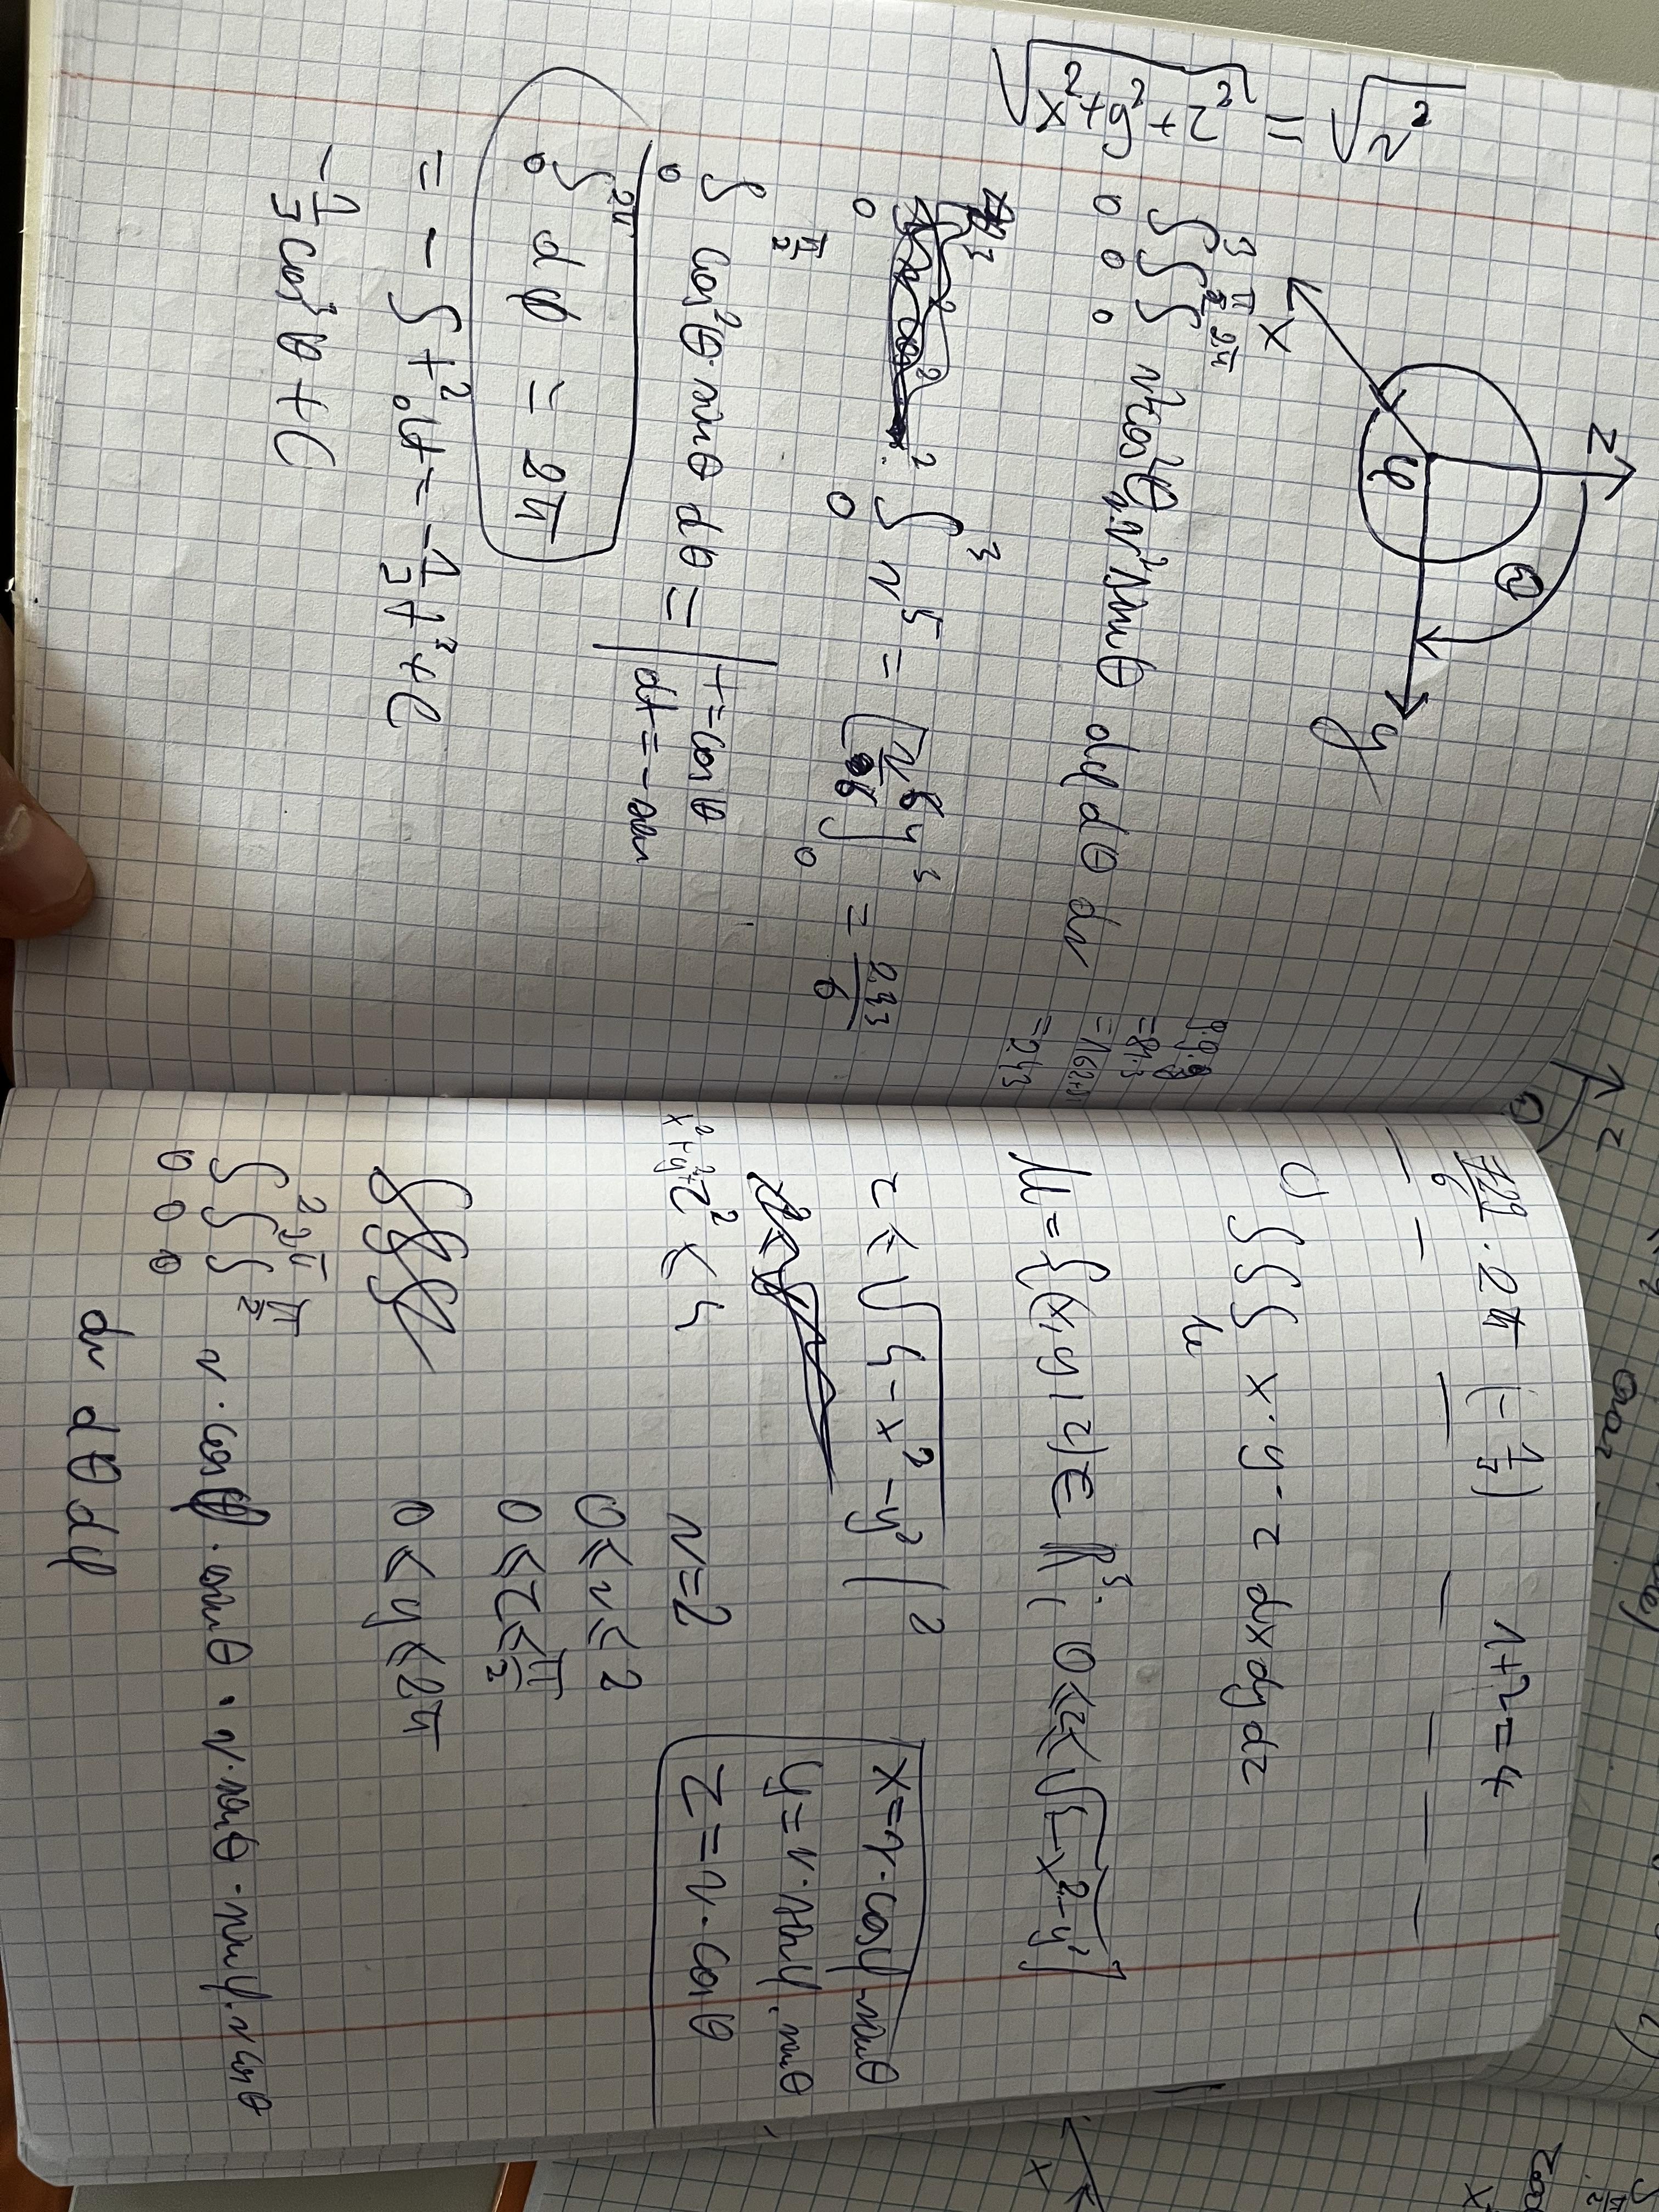 √x²+y²+z² = √r²
z
x
y
φ
θ
∫₀³ ∫₀^(π/2) ∫₀^(2π) r²cos²θ · r² sinθ dφ dθ dr
9·9·9
=81·3
=162+81
=243
∫₀³ r⁵ = [r⁶/6]₀³ = 243/6
∫₀^(π/2) cos²θ · sinθ dθ = | t=cosθ
dt=-sin
∫₀^(2π) dφ = 2π
= - ∫ t² dt = -1/3 t³ + C
-1/3 cos³θ + C
729/6 · 2π (-1/3) 1+2=4
∫∫∫ x·y·z dxdydz
M
M={(x,y,z)∈ℝ³; 0≤z≤√4-x²-y²}
z ≤ √4-x²-y² |²
x²+y²+z² ≤ 4
r=2
0≤r≤2
0≤z≤π/2
0≤y≤2π
x=r·cosφ sinθ
y=r·sinφ·sinθ
z=r·cosθ
∫₀² ∫₀^(2π) ∫₀^(π/2) r·cosφ·sinθ · r·sinθ·sinφ·r cosθ
dr dθ dφ
z
θ
x